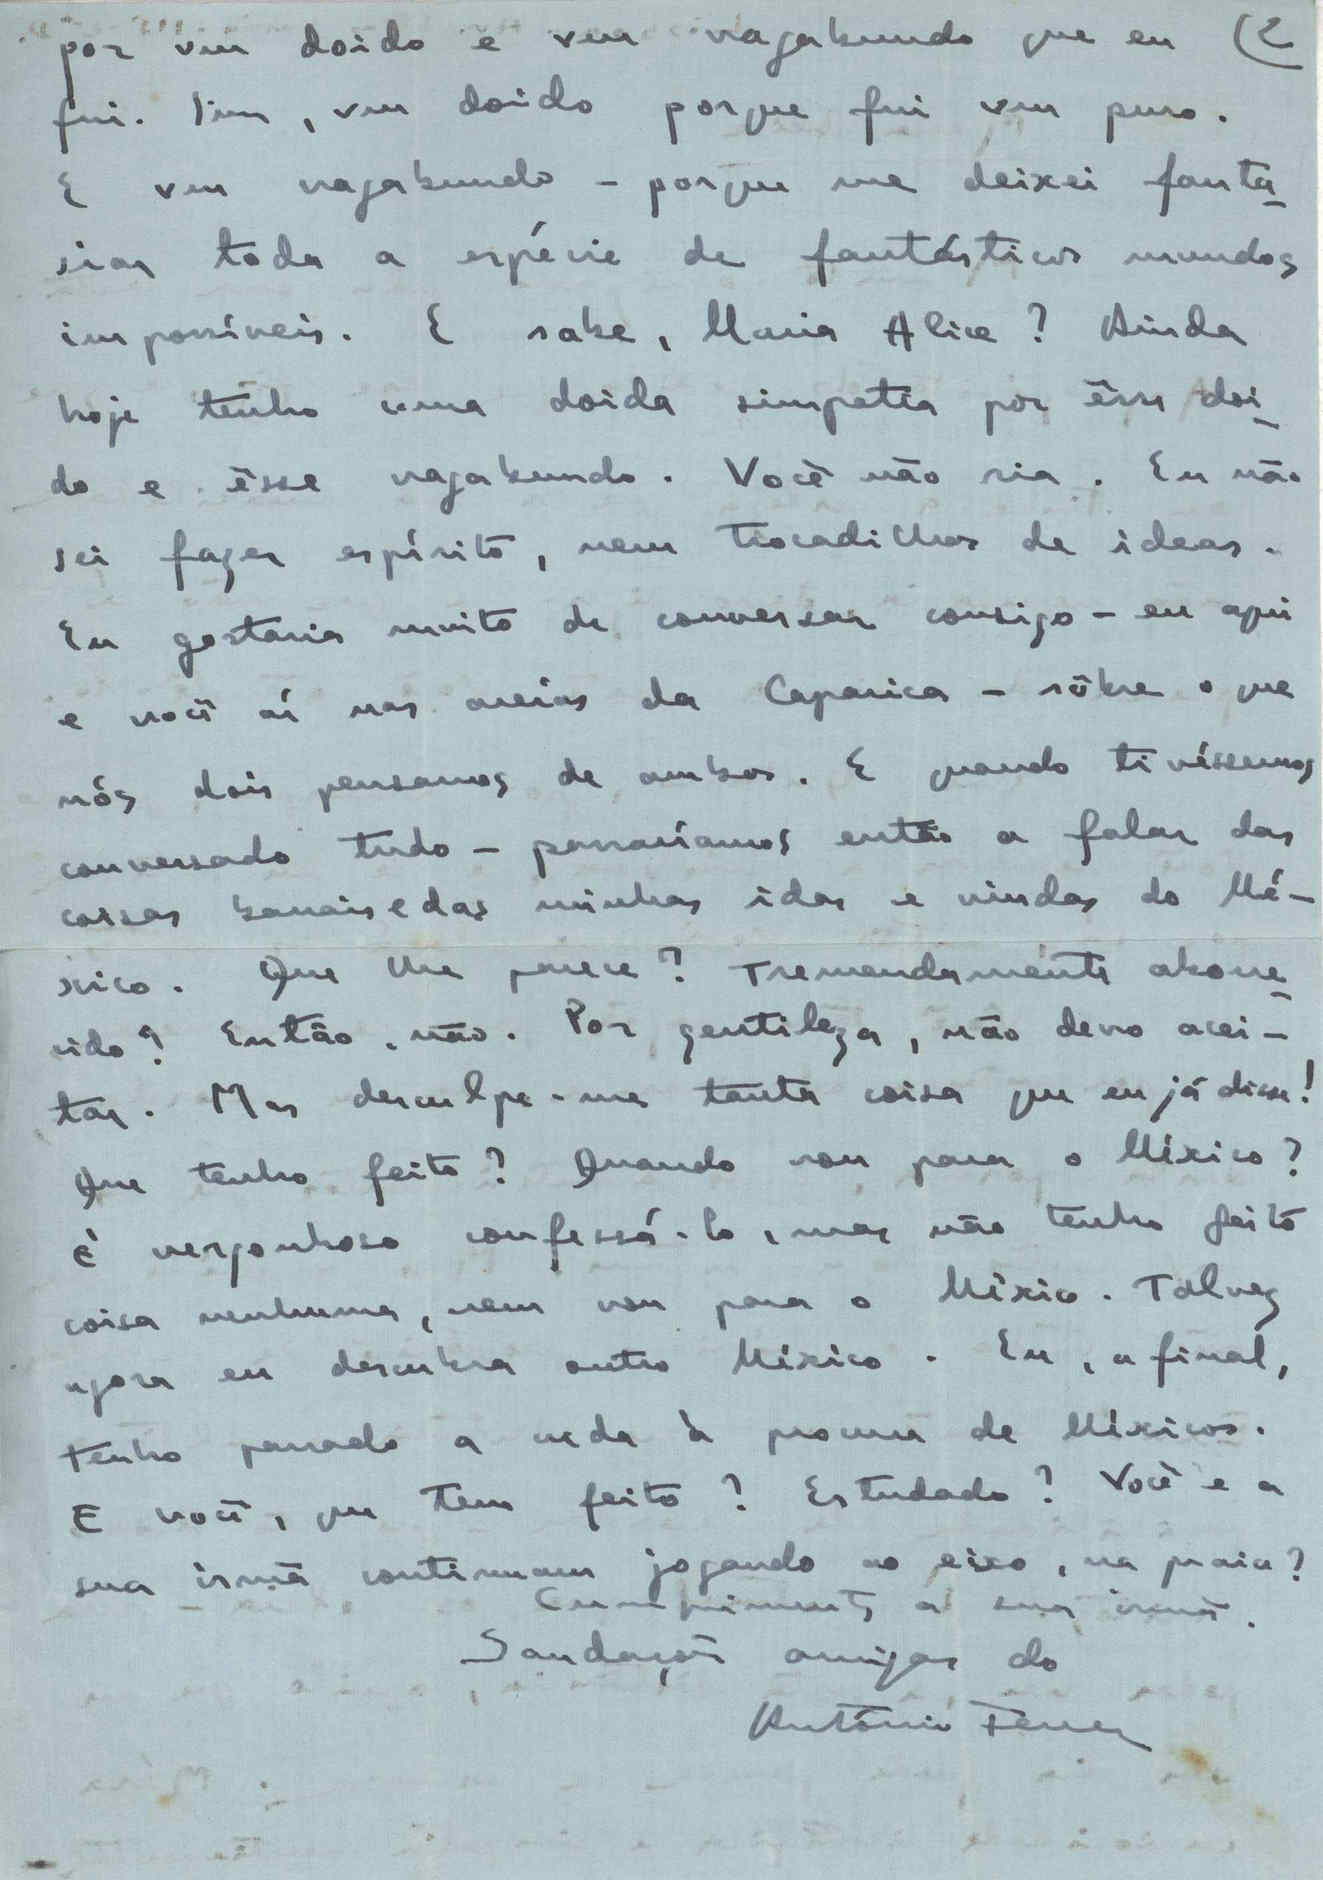 por um doido e um vagabundo que eu (2
fui. Sim, um doido porque fui um puro.
E um vagabundo – porque me deixei fanta-
siar toda a espécie de fantásticos mundos
impossíveis. E sabe, Maria Alice? Ainda
hoje tenho uma doida simpatia por êsse doi-
do e êsse vagabundo. Você não ria. Eu não
sei fazer espírito, nem trocadilhos de ideas.
Eu gostaria muito de conversar consigo – eu aqui
e você aí nas areias da Caparica – sôbre o que
nós dois pensamos de ambos. E quando tivéssemos
conversado tudo – passaríamos então a falar das
coisas banais e das minhas idas e vindas do Mé-
xico. Que lhe parece? Tremendamente aborre-
cido? Então, não. Por gentileza, não devo acei-
tar. Mas desculpe-me tanta coisa que eu já disse!
Que tenho feito? Quando vou para o México?
É vergonhoso confessá-lo, mas não tenho feito
coisa nenhuma, nem vou para o México. Talvez
agora eu descubra outro México. Eu, afinal,
tenho passado a vida à procura de Méxicos.
E você, que tem feito? Estudado? Você e a
sua irmã continuam jogando ao eixo, na praia?
Cumprimentos a sua irmã.
Saudações amigas do
António Ferrer